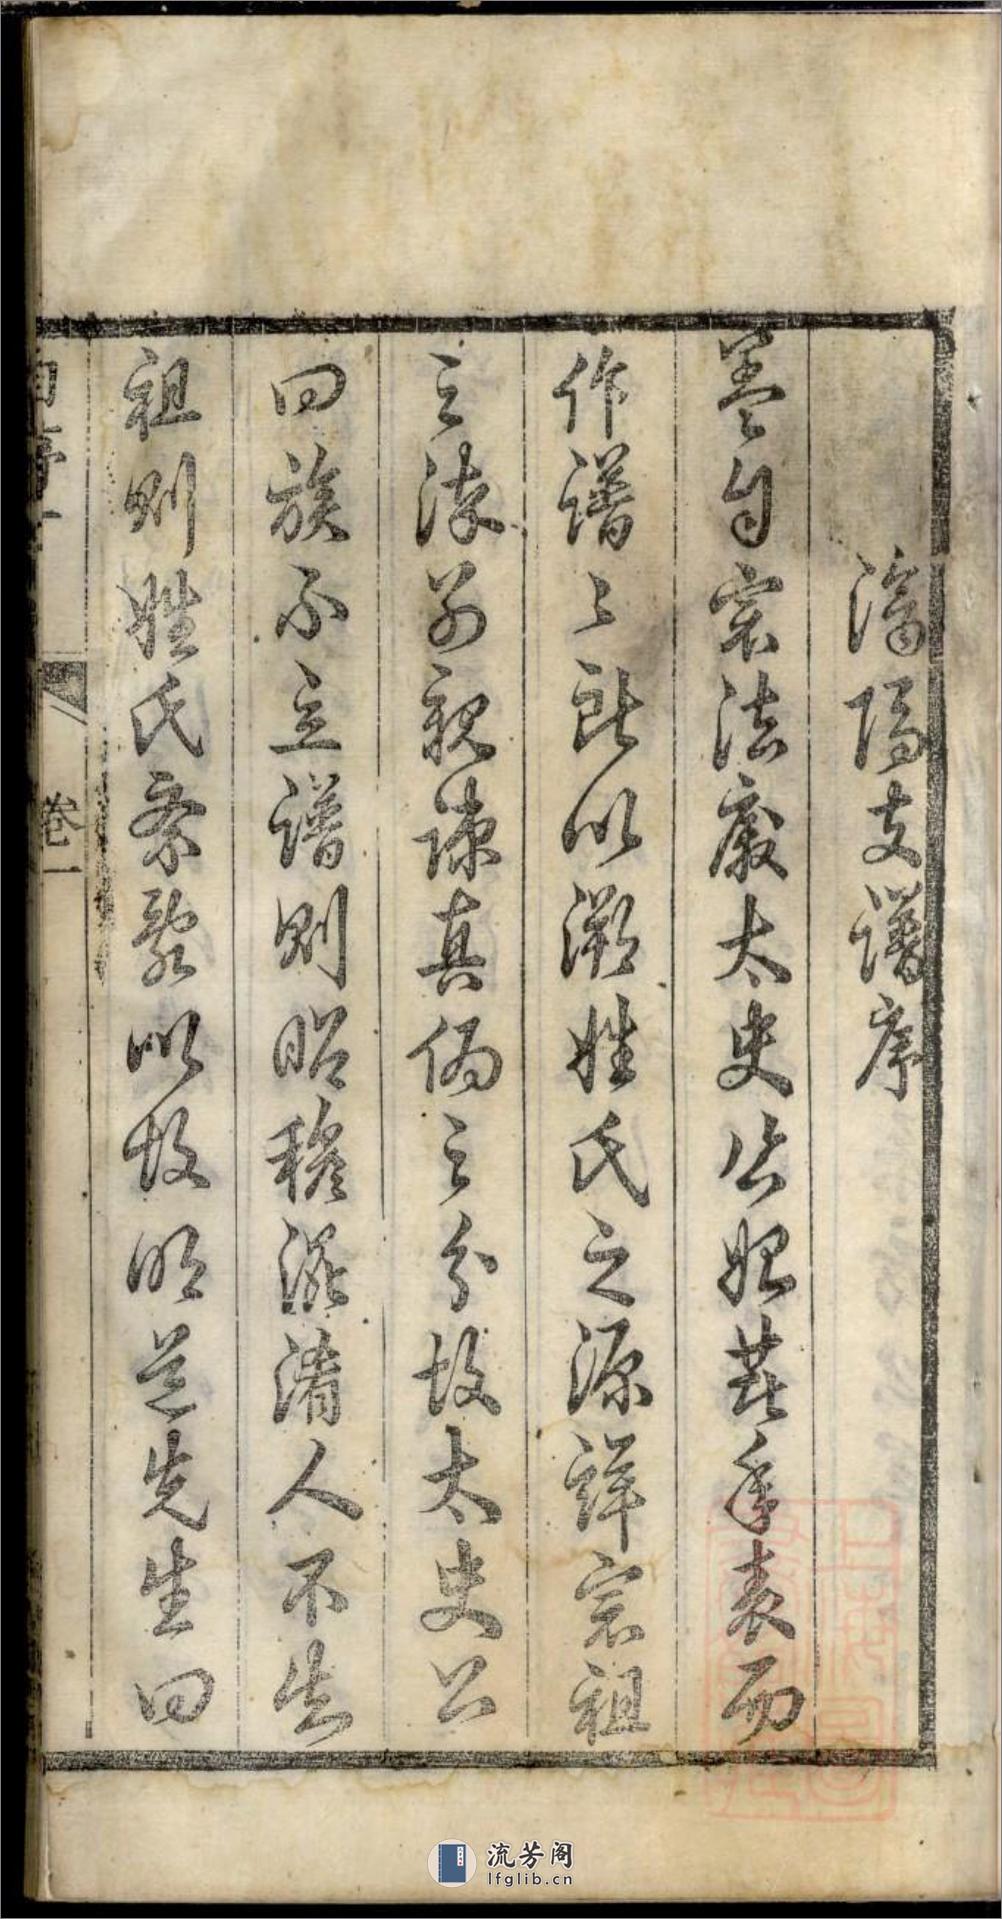 濟陽支譜序
蓋自宗法廢太史公始年表而
作譜々所以溯姓氏之源詳宗祖
之派別親疎真偽之分故太史公
曰族不立譜則昭穆混淆人不
祖則姓氏紊亂以故明道先生曰
卷一
流芳阁
lfglib.cn